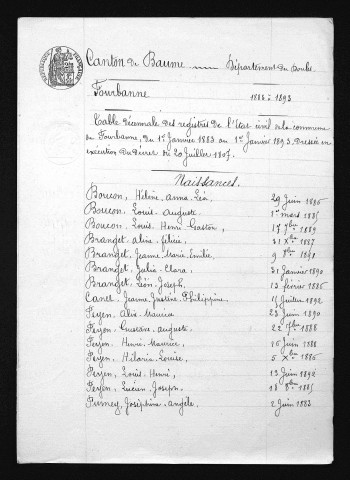 Canton de Baume Département du Doubs
Fourbanne 1883 à 1893
Table décennale des registres de l'état civil de la commune
de Fourbanne, du 1er Janvier 1883 au 1er Janvier 1893. Dressée en
exécution du Décret du 20 Juillet 1807.
Naissances.
Boucon, Hélène Anna Léa. 29 Juin 1886
Boucon, Louis Auguste. 1er mars 1885
Boucon, Louis Henri Gaston. 17 7bre 1889
Branget, Aline Félicie. 31 Xbre 1887
Branget, Jeanne Marie Emilie. 9 8bre 1891
Branget, Julie Clara. 31 Janvier 1890
Branget, Léon Joseph. 13 février 1886
Canel, Jeanne Justine Philippine. 15 Juillet 1892
Feyen, Alix Maurice 23 Juin 1890
Feyen, Gustave Auguste. 22 7bre 1888
Feyen, Henri Maurice. 26 Juin 1888
Feyen, Hilaria Louise. 5 Xbre 1886
Feyen, Louis Henri, 13 Juin 1892
Feyen, Lucien Joseph. 18 8bre 1885
Joséphine Angèle. 2 Juin 1883